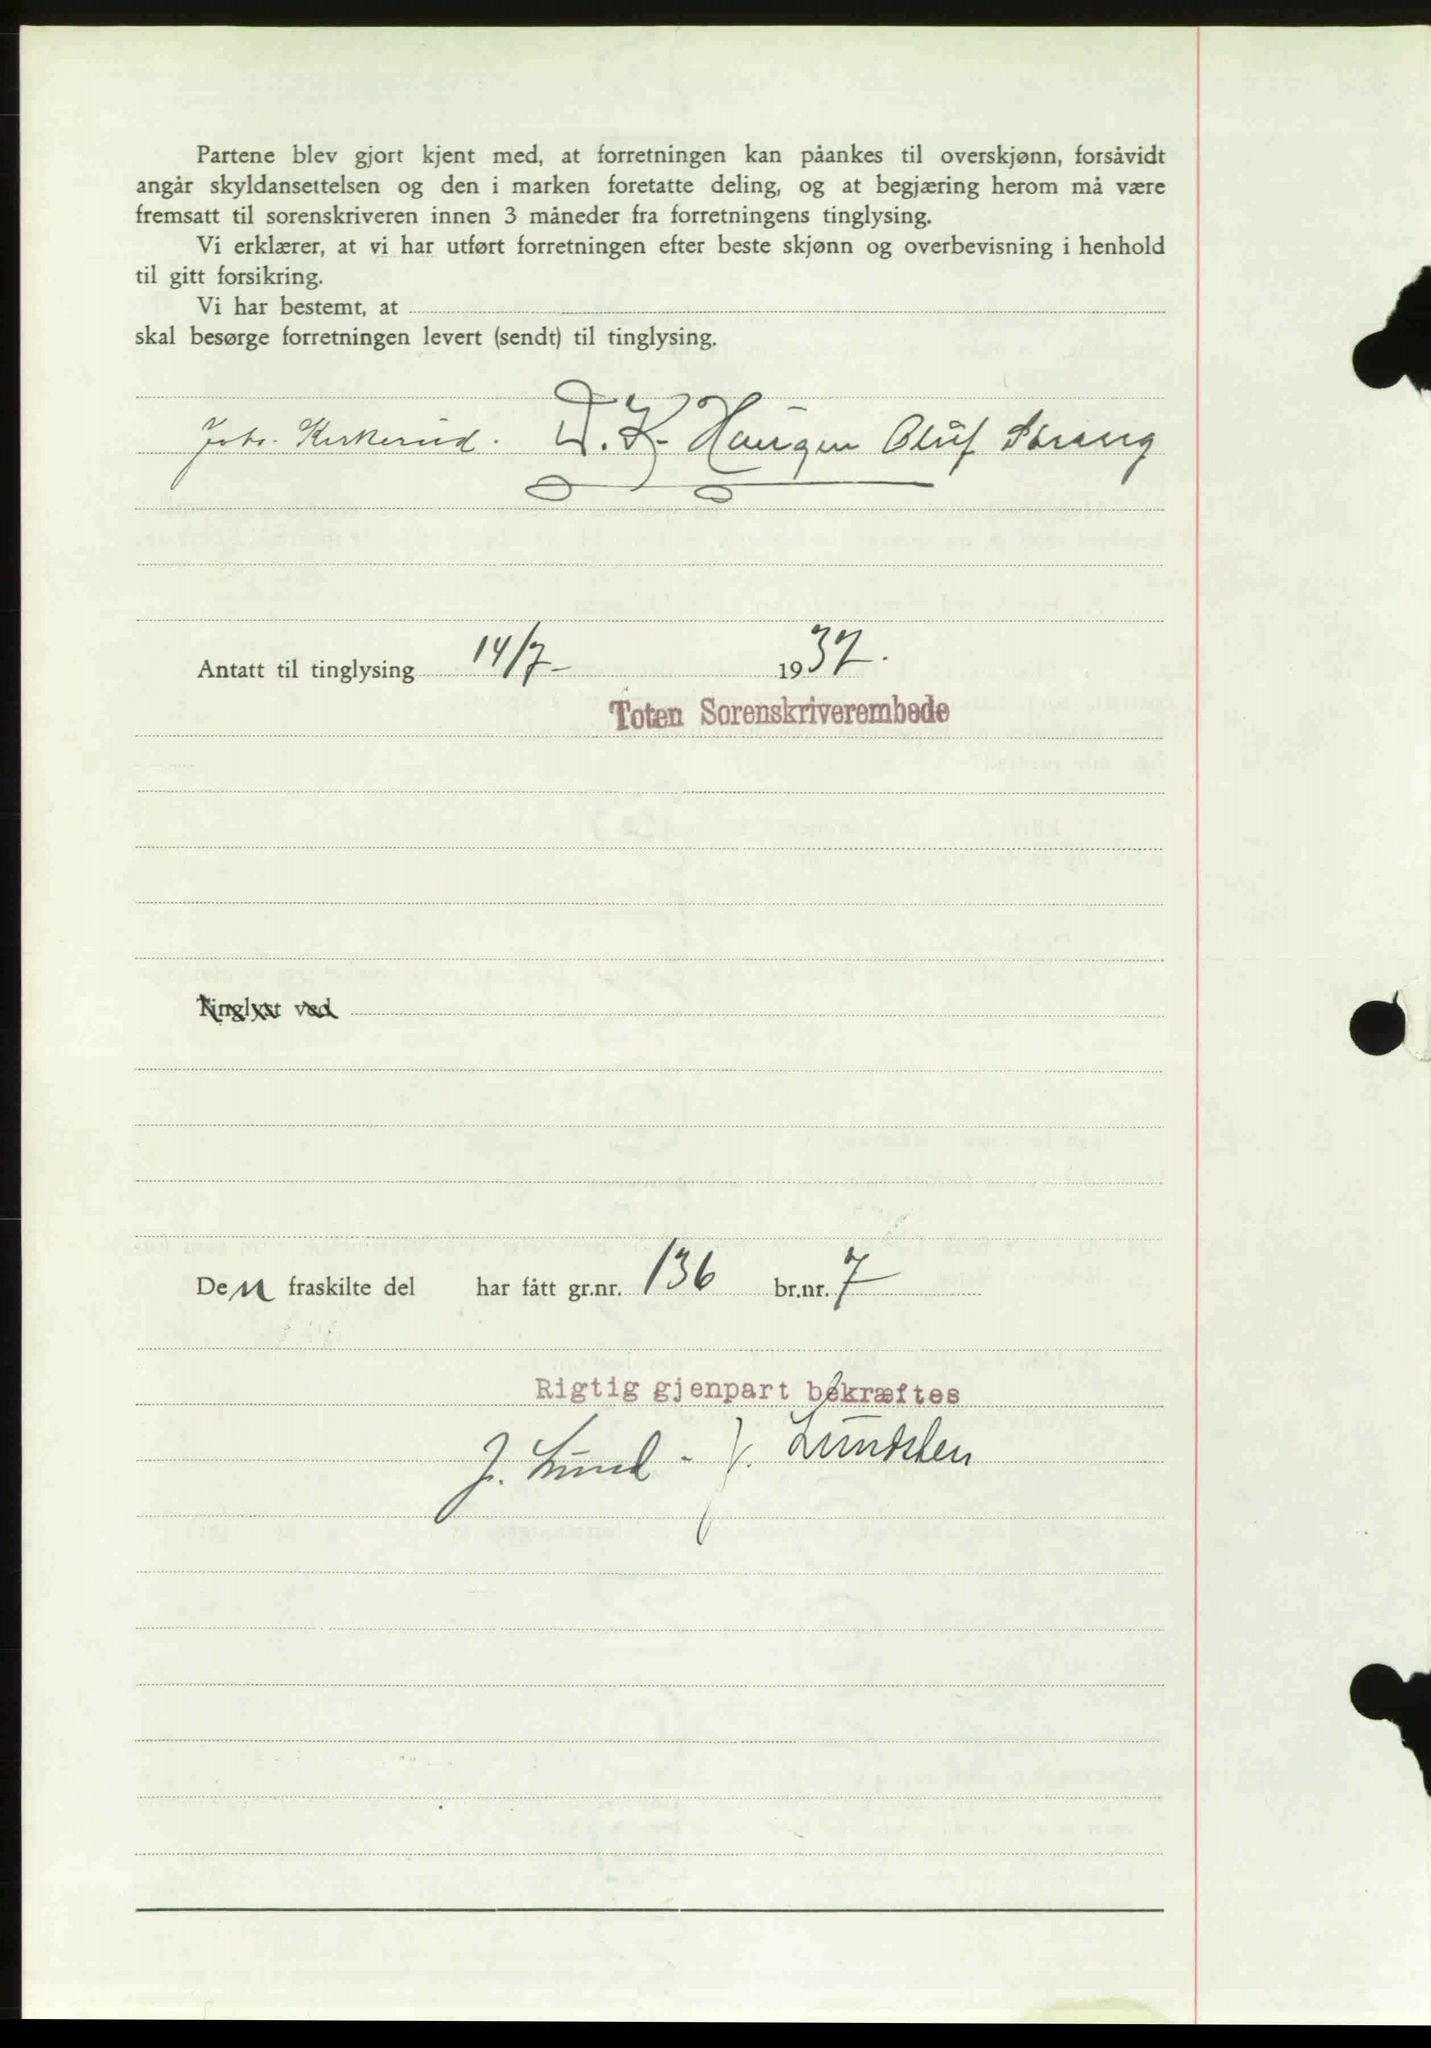 Partene blev gjort kjent med, at forretningen kan påankes til overskjønn, forsåvidt
angår skyldansettelsen og den i marken foretatte deling, og at begjæring herom må være
fremsatt til sorenskriveren innen 3 måneder fra forretningens tinglysing.
Vi erklærer, at vi har utført forretningen efter beste skjønn og overbevisning i henhold
til gitt forsikring.
Vi har bestemt, at
skal besørge forretningen levert (sendt) til tinglysing.
Johs. Kirkerud. D. K. Haugen Oluf
Antatt til tinglysing 14/7- 1937.
Toten Sorenskriverembede
Tinglyst ved
Den fraskilte del har fått gr.nr. 136 br.nr. 7
Rigtig gjenpart bekræftes
J. Lund - J. Lundsten